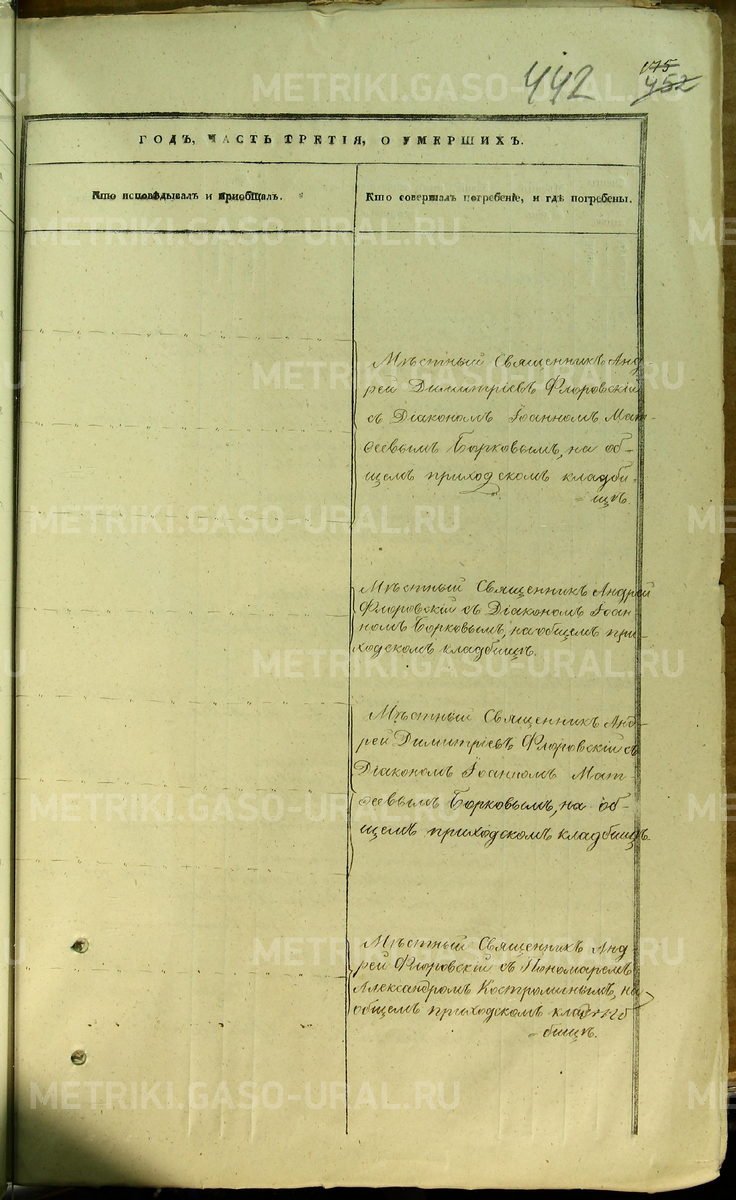 442
175
452
ГОДЪ, ЧАСТЬ ТРЕТІЯ, О УМЕРШИХЪ.
Кто исповѣдывалъ и приобщалъ.
Кто совершалъ погребеніе, и гдѣ погребены.
Мѣстный Священникъ Анд-
рей Димитріевъ Флоровскій
съ Діакономъ Іоанномъ Мат-
ѳеевымъ Борковымъ, на об-
щемъ приходскомъ кладби-
щѣ.
Мѣстный Священникъ Андрей
Флоровскій съ Діакономъ Іоан-
номъ Борковымъ, на общемъ при-
ходскомъ кладбищѣ.
Мѣстный Священникъ Анд-
рей Димитріевъ Флоровскій съ
Діакономъ Іоанномъ Мат-
ѳеевымъ Борковымъ, на об-
щемъ приходскомъ кладбищѣ.
Мѣстный Священникъ Анд-
рей Флоровскій съ Пономаремъ
Александромъ Костромигнымъ, на
общемъ приходскомъ клад-
бищѣ.
METRIKI.GASO-URAL.RU